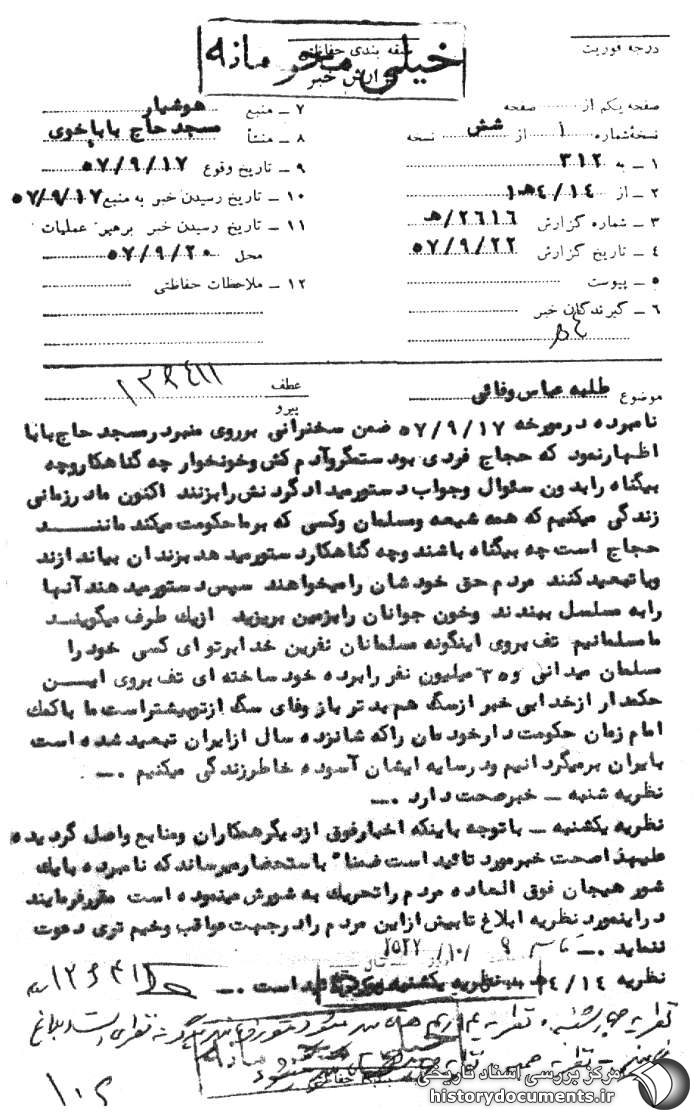 خیلی محرمانه
طبقه بندی حفاظتی
گزارش خبر
درجه فوریت
صفحه یکم از صفحه
نسخه شماره ۱ از شش نسخه
۱ – به ۳۱۲
۲ – از ۱۴/ﻫ۴۱
۳ – شماره گزارش ۲۶۱۶/ﻫ
۴ – تاریخ گزارش ۵۷/۹/۲۲
۵ – پیوست
۶ – گیرندگان خبر
۷ – منبع هوشیار
۸ – منشأ مسجد حاج باباخوی
۹ – تاریخ وقوع ۵۷/۹/۱۷
۱۰ – تاریخ رسیدن خبر به منبع ۵۷/۹/۱۷
۱۱ – تاریخ رسیدن خبر برهبر عملیات
محل ۵۷/۹/۲۰
۱۲ – ملاحظات حفاظتی
موضوع طلبه عباس وفائی
عطف
پیرو
نامبرده درمورخه ۵۷/۹/۱۷ ضمن سخنرانی برروی منبردرمسجد حاج بابا
اظهارنمود که حجاج فردی بود ستمگروآدم کش وخونخوار چه گناهکاروچه
بیگناه رابدون سئوال وجواب دستورمیداد گردنش رابزنند اکنون مادرزمانی
زندگی میکنیم که همه شیعه ومسلمان وکسی که برماحکومت میکند مانند
حجاج است چه بیگناه باشند وچه گناهکاردستورمیدهد بزندان بیاندازند
ویاتبعیدکنند مردم حق خودشان رامیخواهند سپس دستورمیدهند آنها
رابه مسلسل ببندند وخون جوانان رابزمین بریزید ازیک طرف میگویند
مامسلمانیم تف بروی اینگونه مسلمانان نفرین خدابرتوای کسی خود را
مسلمان میدانی و۳۵ میلیون نفررابرده خودساخته ای تف بروی این
حکمدار ازخدابی خبر ازسگ هم بدتر باز وفای سگ ازتوبیشتراست ما باکمک
امام زمان حکومت دارخودمان راکه شانزده سال ازایران تبعیدشده است
بایران برمیگردانیم ودرسایه ایشان آسوده خاطرزندگی میکنیم .–
نظریه شنبه – خبرصحت دارد .–
نظریه یکشنبه – باتوجه باینکه اخبارفوق ازدیگرهمکاران ومنابع واصل گردیده
علیهذاصحت خبرمورد تائید است ضمنا" باستحضارمیرساند که نامبرده بایک
شور هیجان فوق العاده مردم راتحریک به شورش مینموده است مقررفرمایند
دراینمورد نظریه ابلاغ تابیش ازاین مردم رادرجهت عواقب وخیم تری دعوت
ننماید .–
نظریه ۱۴/ﻫ۴ – نظریه یکشنبه مورد تائید است .–
خیلی محرمانه
طبقه بندی حفاظتی
مرکز بررسی اسناد تاریخی
historydocuments.ir